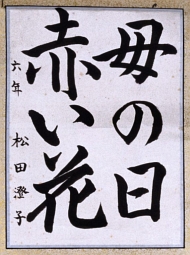 母の日
赤い花
六年 松田澄子